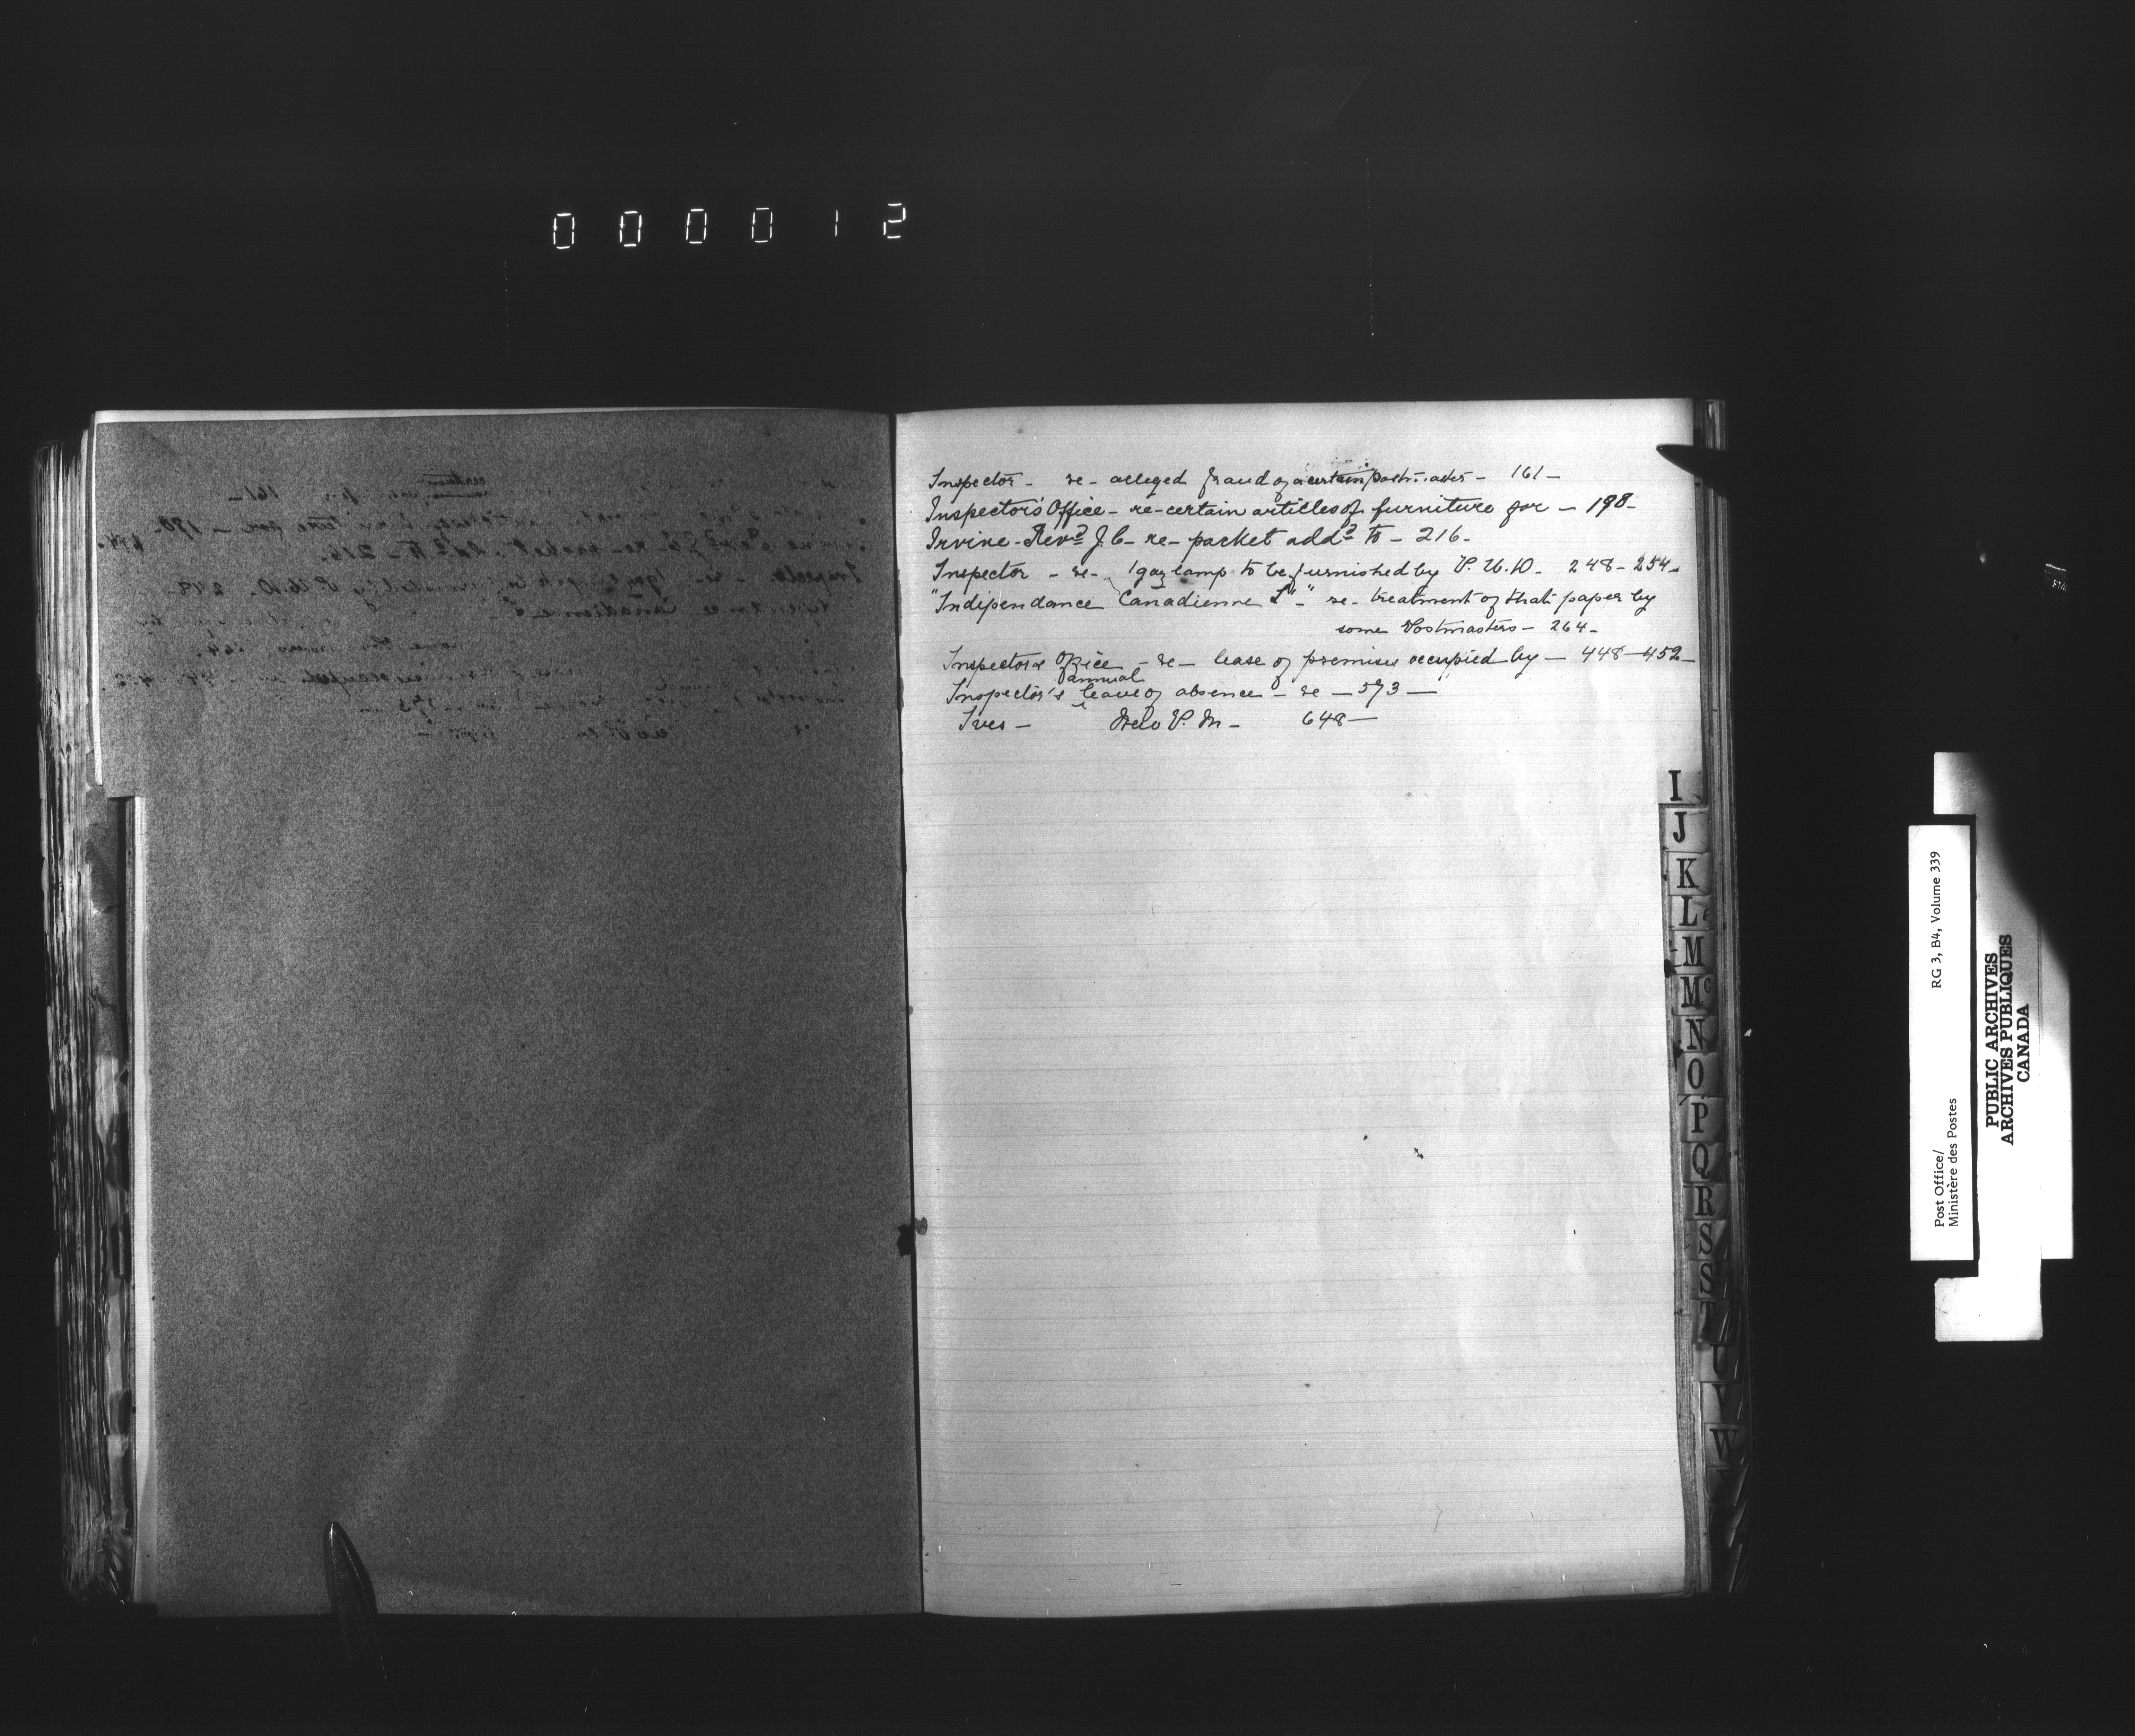 000012
Inspector - re - alleged fraud of a certain postmaster - 161 -
Inspector's Office - re - certain articles of furniture for - 198 -
Irvine - Revd J. C - re - packet addd to - 216 -
Inspector - re - 1 gaz lamp to be furnished by P. W. D. 248 - 254 -
"Indipendance Canadienne L'" - re - treatment of that paper by
some Postmasters - 264 -
Inspectors Office - re - lease of premises occupied by - 448 - 452 -
annual
Inspector's leave of absence - re - 573 -
Ives - New P. M - 648 -
I
J
K
L
M
Mc
N
O
P
Q
R
S
S
T
U
V
W
Post Office/
Ministère des Postes
RG 3, B4, Volume 339
PUBLIC ARCHIVES
ARCHIVES PUBLIQUES
CANADA